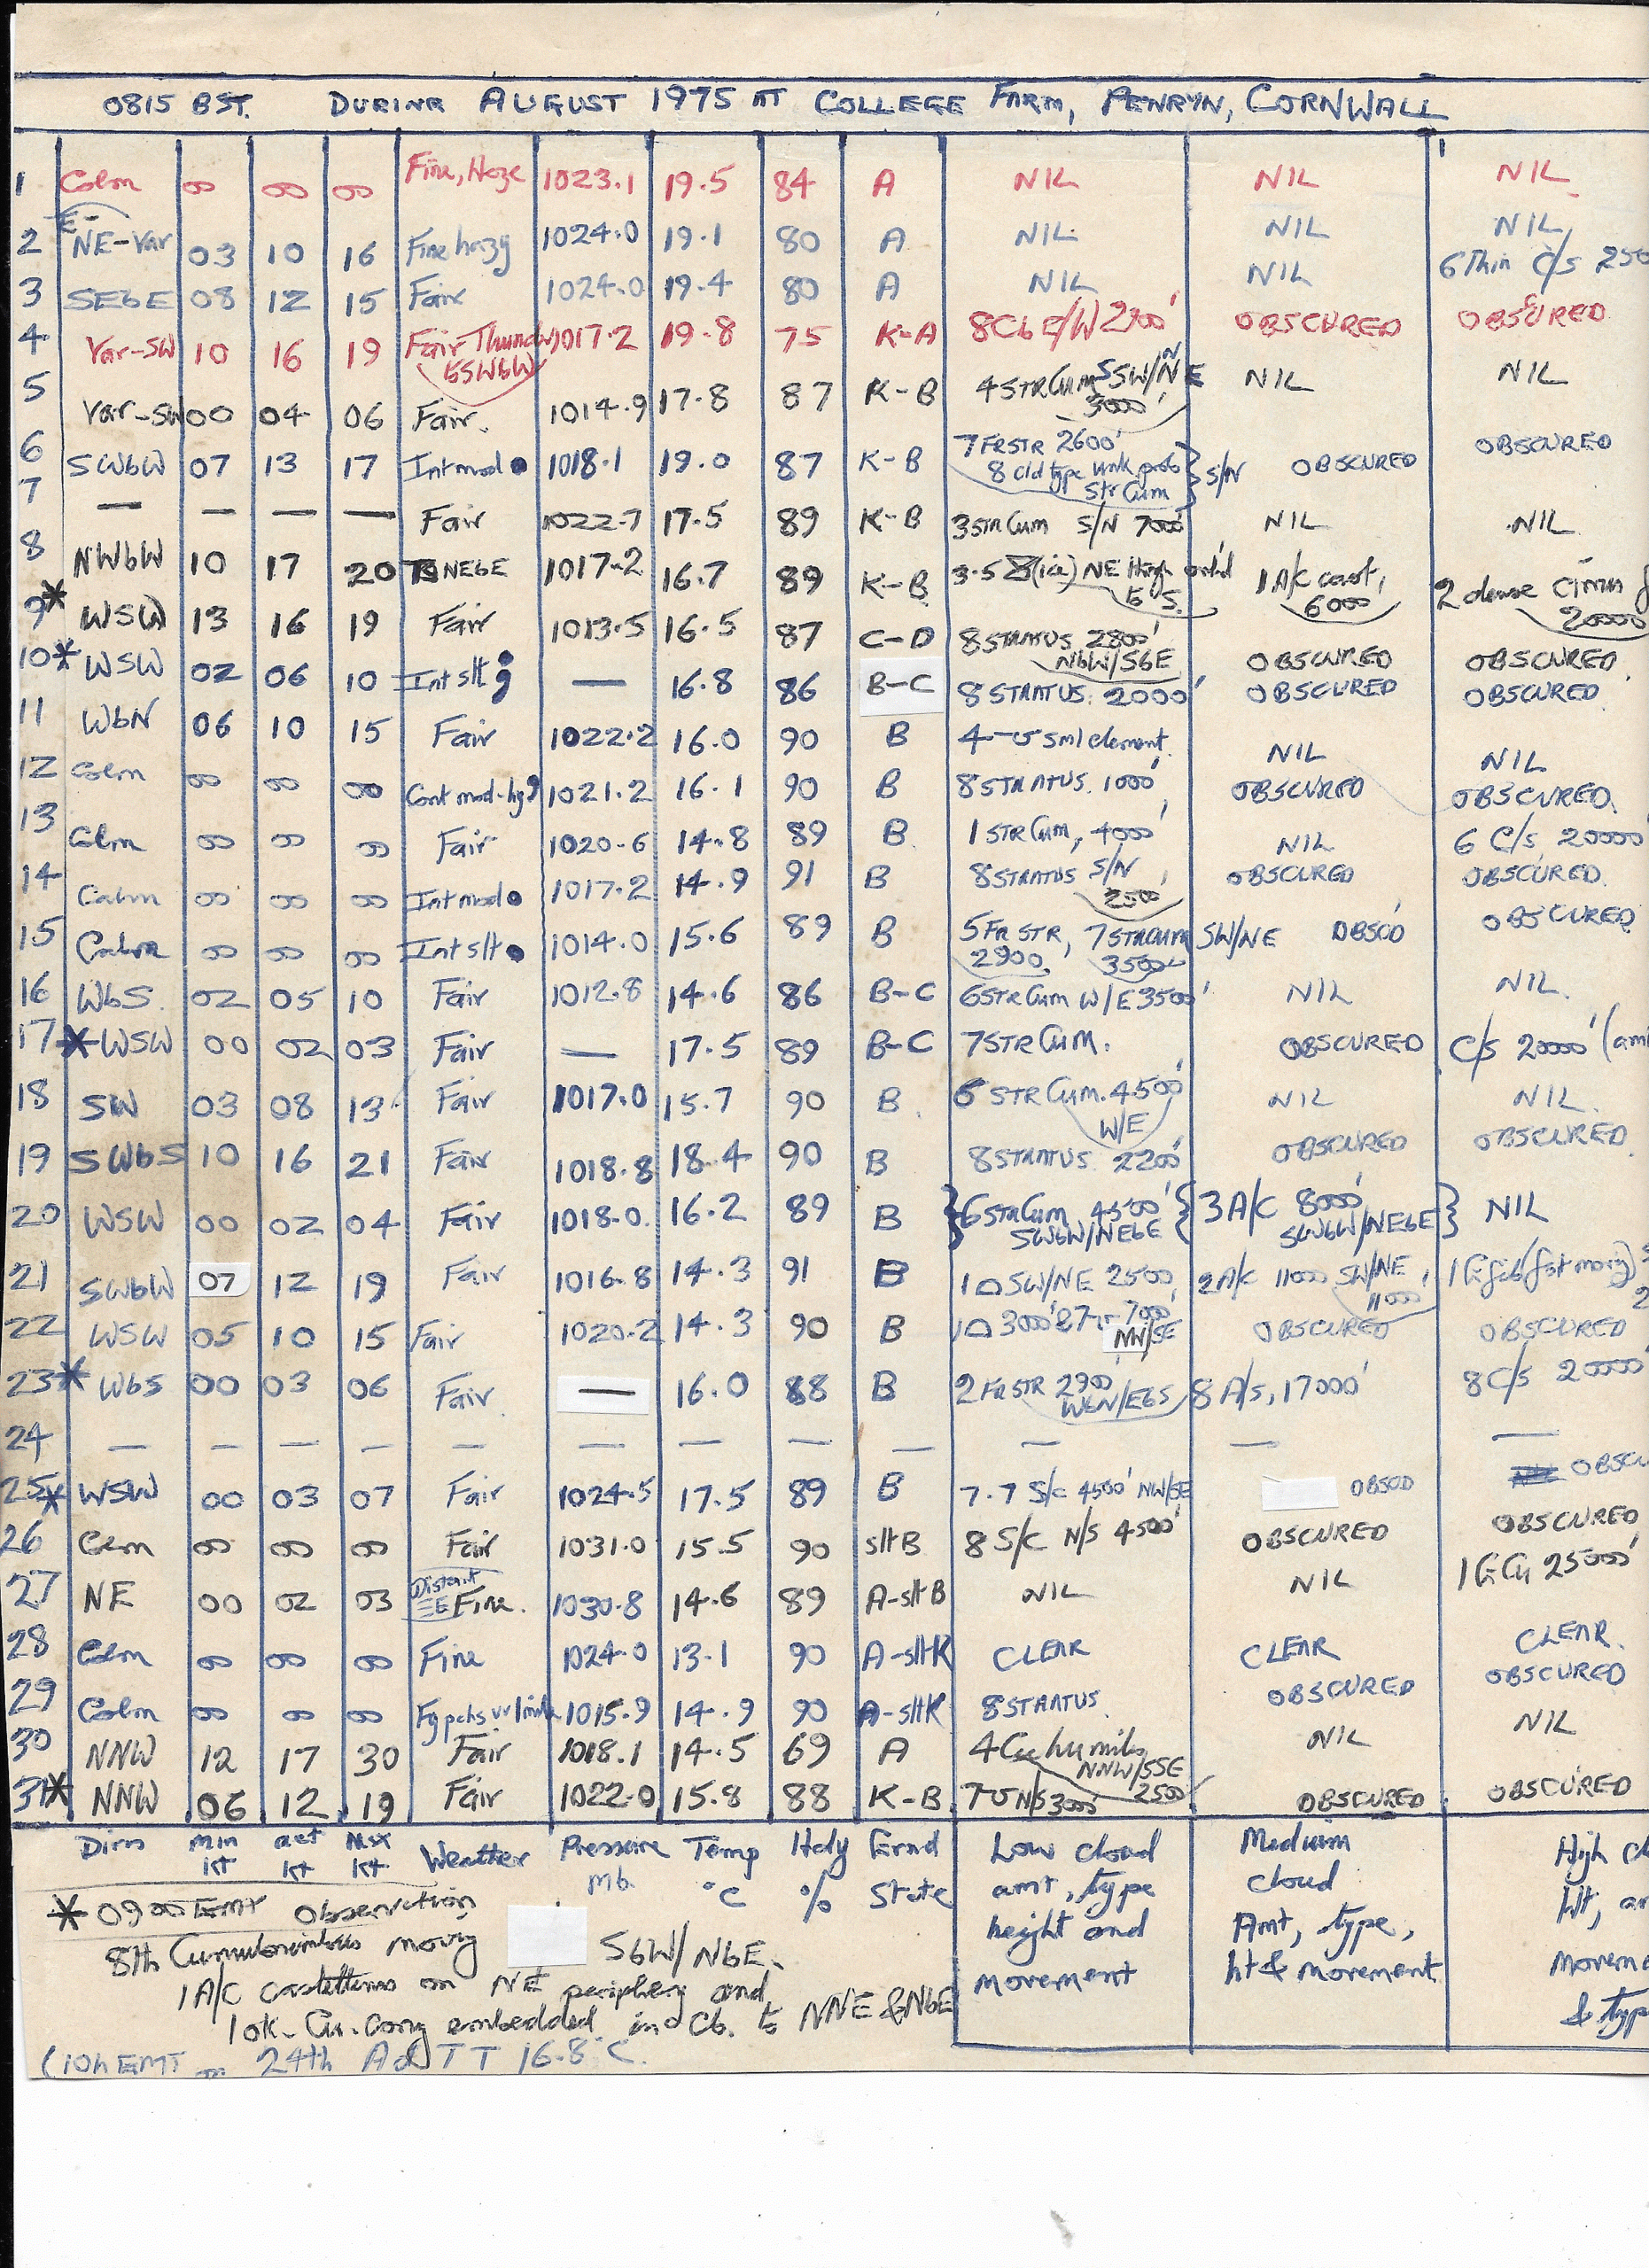 0815 BST. DURING AUGUST 1975 AT COLLEGE FARM, PENRYN, CORNWALL
1 Calm 00 00 00 Fine, Haze 1023.1 19.5 84 A NIL NIL NIL
2 E-NE-Var 03 10 16 Fine hazy 1024.0 19.1 80 A NIL NIL NIL
3 SEbE 08 12 15 Fair 1024.0 19.4 80 A NIL NIL 6 Thin C/S 250
4 Var-SW 10 16 19 Fair Thund 1017.2 19.8 75 K-A 8Cb E/W 2900' OBSCURED OBSCURED
to SWbW
5 Var-SW 00 04 06 Fair. 1014.9 17.8 87 K-B 4 STR Cum SSW/NNE 3000' NIL NIL
6 SWbW 07 13 17 Int mod ● 1018.1 19.0 87 K-B 7 FRSTR 2600' 8 cld type unk prob Str Cum } S/N OBSCURED OBSCURED
7 — — — — Fair 1022.7 17.5 89 K-B 3 STR Cum S/N 7000' NIL NIL
8 NWbW 10 17 20 NEbE 1017.2 16.7 89 K-B 3.5 NE to S. 1 A/C cast, 6000' 2 dense 20000
9* WSW 13 16 19 Fair 1013.5 16.5 87 C-D 8 STRATUS 2800' NbW/SbE OBSCURED OBSCURED
10* WSW 02 06 10 Int slt — 16.8 86 B-C 8 STRATUS. 2000' OBSCURED OBSCURED
11 WbN 06 10 15 Fair 1022.2 16.0 90 B 4 sml element NIL NIL
12 Calm 00 00 00 Cont mod-hy 1021.2 16.1 90 B 8 STRATUS. 1000' OBSCURED OBSCURED.
13 Calm 00 00 00 Fair 1020.6 14.8 89 B 1 STR Cum, 4000' NIL 6 C/S 20000'
14 Calm 00 00 00 Int mod ● 1017.2 14.9 91 B 8 STRATUS S/N, 2500 OBSCURED OBSCURED.
15 Calm 00 00 00 Int slt ● 1014.0 15.6 89 B 5 FR STR, 2900. 7 STRCUM 3500' SW/NE OBSCD OBSCURED
16 WbS. 02 05 10 Fair 1012.8 14.6 86 B-C 6 STR Cum W/E 3500' NIL NIL.
17* WSW 00 02 03 Fair — 17.5 89 B-C 7 STR CUM. OBSCURED C/S 20000' (am
18 SW 03 08 13 Fair 1017.0 15.7 90 B. 6 STR Cum. 4500' W/E NIL NIL.
19 SWbS 10 16 21 Fair 1018.8 18.4 90 B 8 STRATUS. 2200' OBSCURED OBSCURED
20 WSW 00 02 04 Fair 1018.0. 16.2 89 B } 6 STR Cum 4500' SWbW/NEbE { 3 A/C 8000' SWbW/NEbE } NIL
21 SWbW 07 12 19 Fair 1016.8 14.3 91 B 1 ⌓ SW/NE 2500, 2 A/C 11000 SW/NE, 11000'
22 WSW 05 10 15 Fair 1020.2 14.3 90 B 1 ⌓ 3000' & 7 7000' NW/SE OBSCURED OBSCURED
23* WbS 00 03 06 Fair — 16.0 88 B 2 FRSTR 2900' WbN/EbS 8 A/S, 17000' 8 C/S 20000'
24 — — — — — — — — — — — —
25* WSW 00 03 07 Fair 1024.5 17.5 89 B 7.7 S/C 4500' NW/SE OBSCD OBSCU
26 Calm 00 00 00 Fair 1031.0 15.5 90 slt B 8 S/C N/S 4500' OBSCURED OBSCURED
27 NE 00 02 03 Distant ≡ E Fine. 1030.8 14.6 89 A-slt B NIL NIL 1 25000'
28 Calm 00 00 00 Fine 1024.0 13.1 90 A-slt K CLEAR CLEAR CLEAR.
29 Calm 00 00 00 Fg pchs 1015.9 14.9 90 A-slt K 8 STRATUS. OBSCURED OBSCURED
30 NNW 12 17 30 Fair 1018.1 14.5 69 A 4 Cu humilis NNW/SSE 2500' NIL NIL
31* NNW 06 12 19 Fair 1022.0 15.8 88 K-B 7 N/S 3000' OBSCURED OBSCURED
Dirn min kt act kt Max kt Weather Pressure mb. Temp °C Hdy % Grnd State Low cloud amt, type height and movement Medium cloud Amt, type, ht & movement High cl Ht, a Movem & typ
* 0900 GMT observation
8th Cumulonimbus moving SbW/NbE.
1 A/C castellanus on NE periphery and
1 ok. Cu. Cong embedded in Cb. to NNE & NbE
(10h GMT on 24th Ad TT 16.8°C.